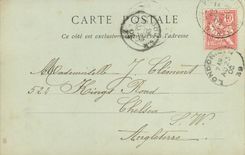 CARTE POSTALE
Ce côté est exclusivement réservé à l'adresse
Mademoiselle J. Clement
52 Kings Road
Chelsea
S.W.
Angleterre
10
LONDON